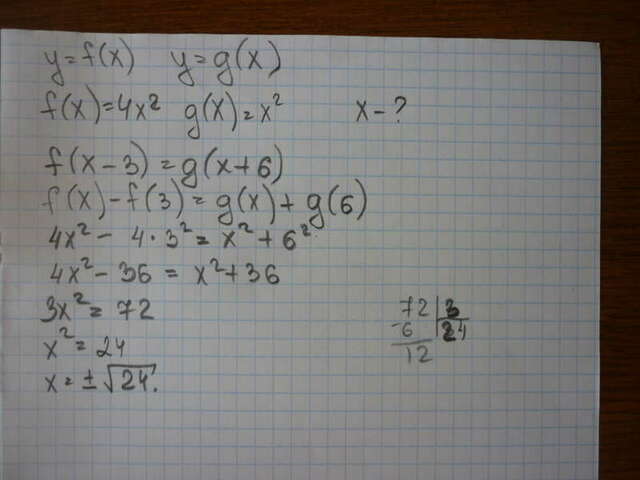 y=f(x) y=g(x)
f(x)=4x² g(x)=x² x-?
f(x-3)=g(x+6)
f(x)-f(3)=g(x)+g(6)
4x²- 4·3²= x²+6²
4x²-36 = x²+36
3x²= 72
x²= 24
x=±√24.
72 | 3
-6 | 24
12